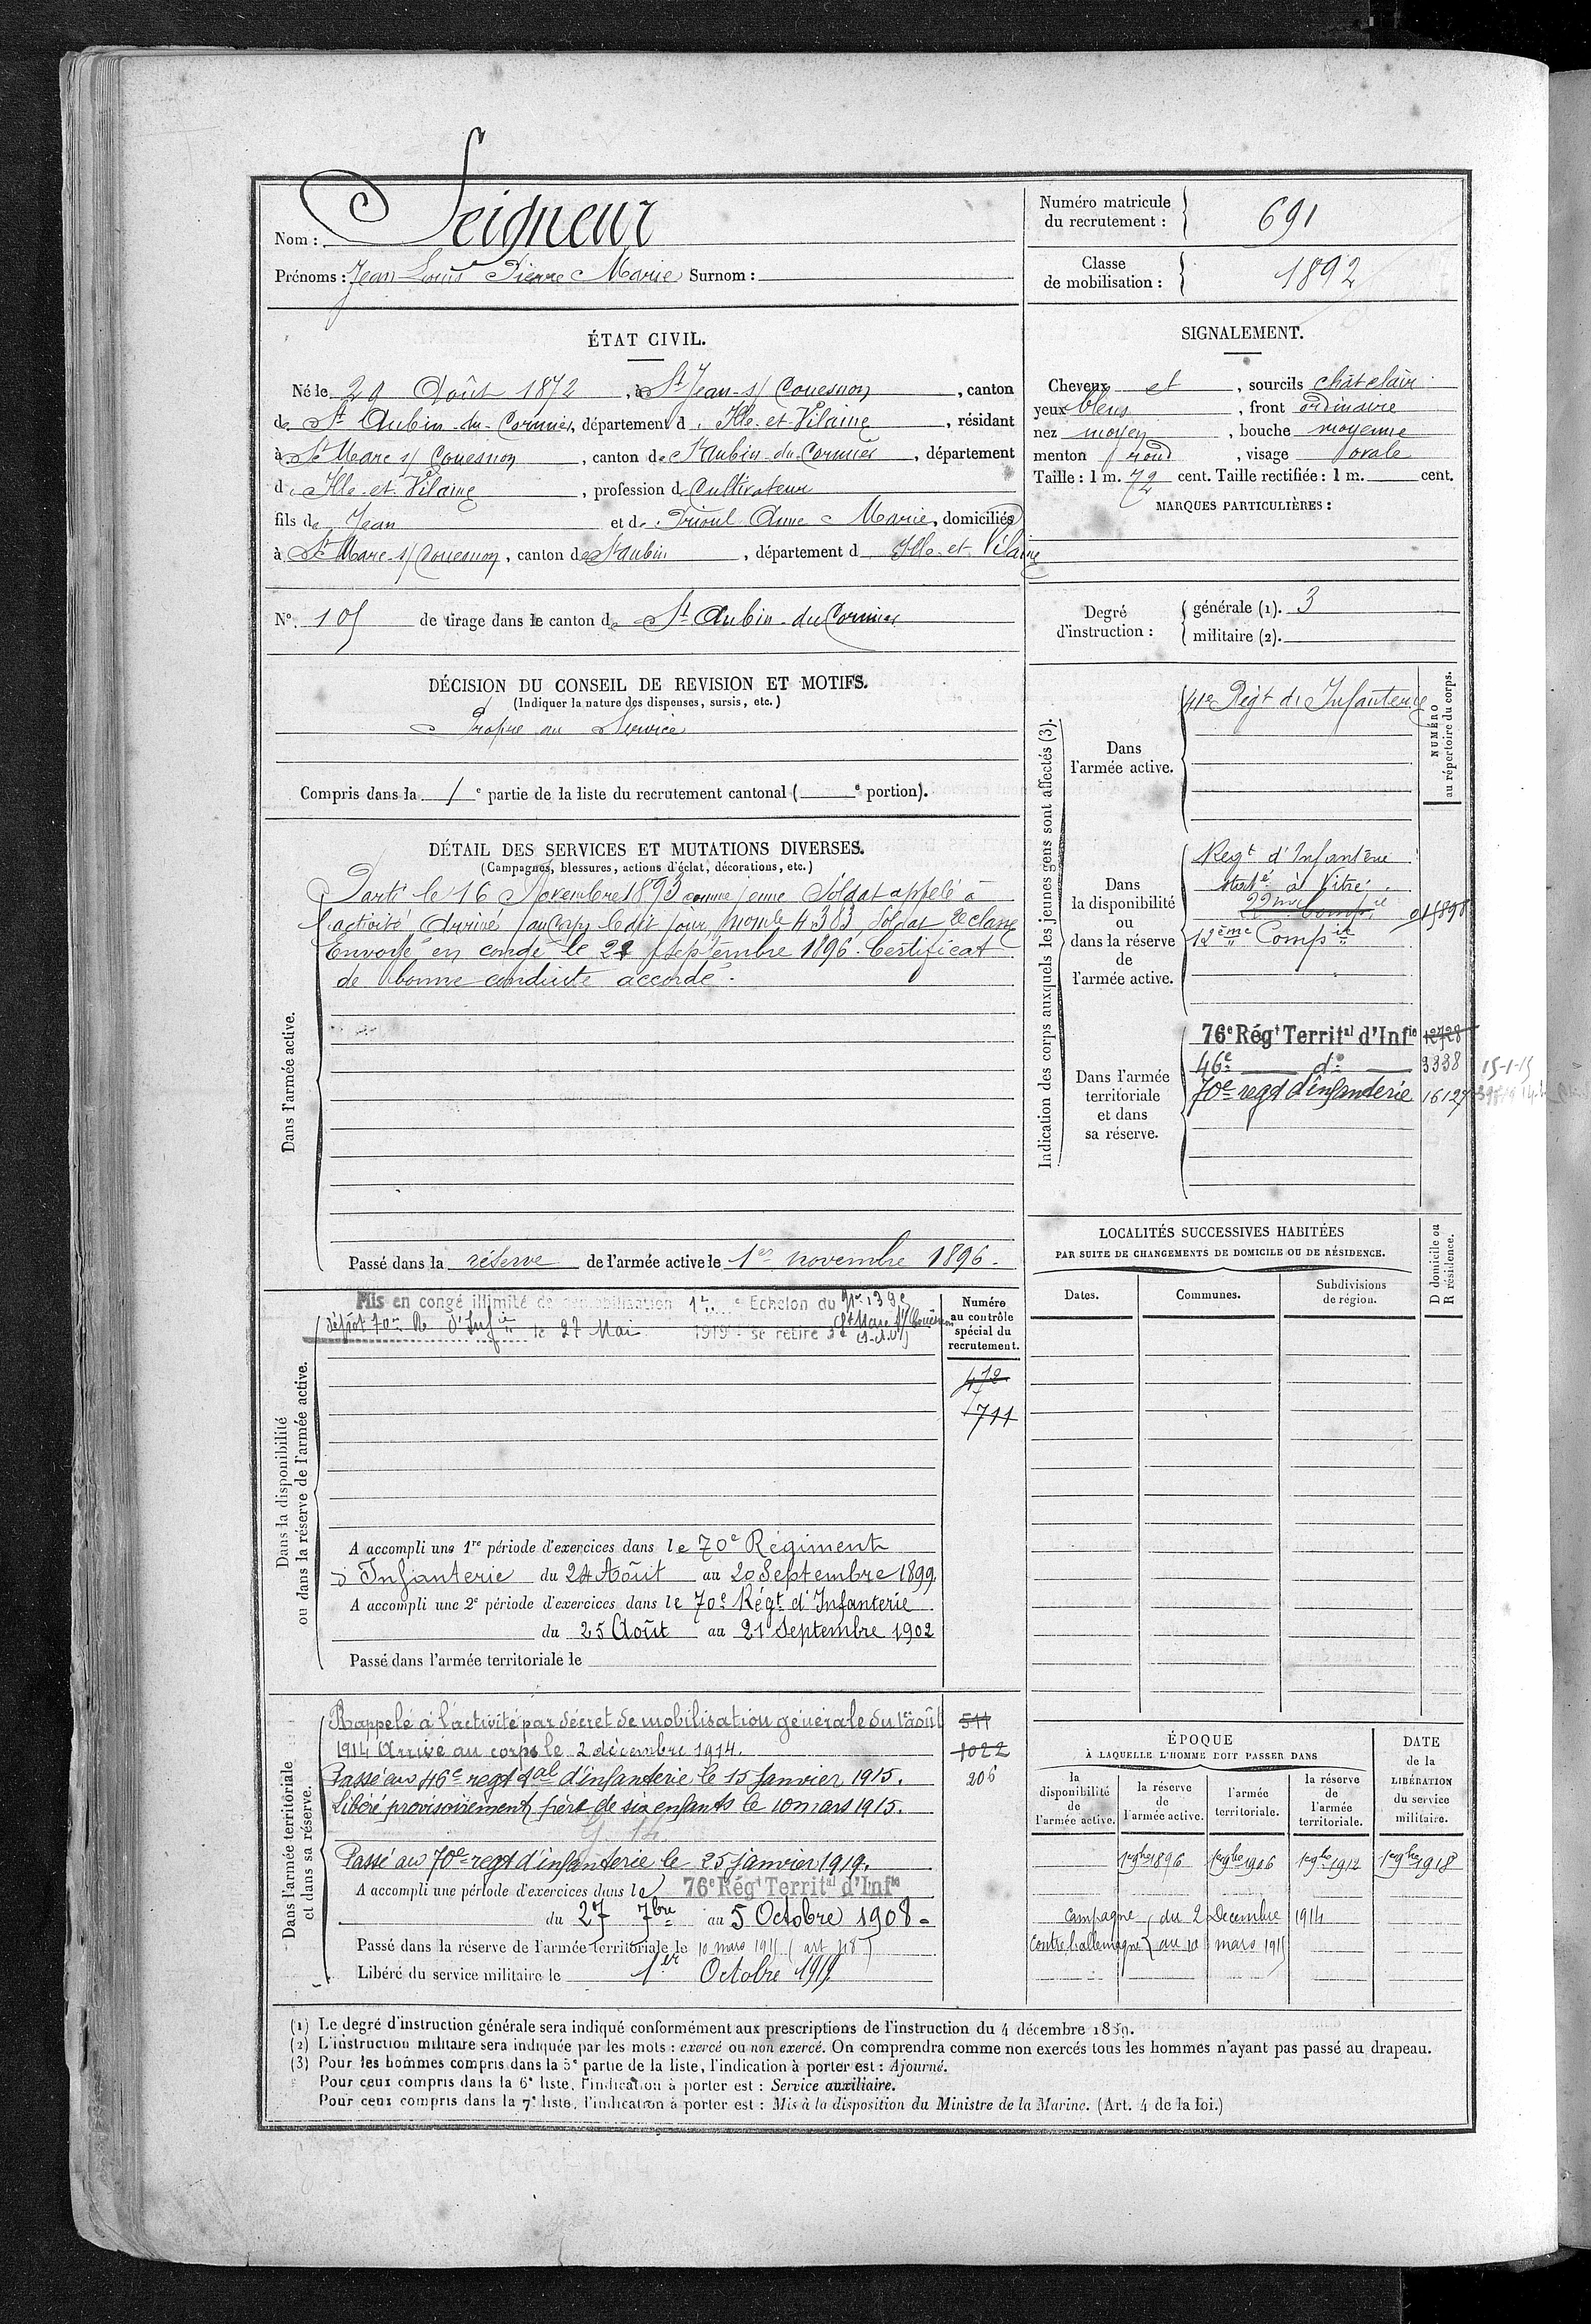 Nom : Seigneur
Prénoms : Jean Louis Pierre Marie Surnom :
Numéro matricule du recrutement : 691
Classe de mobilisation : 1892
ÉTAT CIVIL.
Né le 29 Août 1872, à St Jean s/ Couesnon, canton
de St Aubin du Cormier, département d Ille et Vilaine, résidant
à St Marc s/ Couesnon, canton de St Aubin du Cormier, département
d Ille et Vilaine, profession d Cultivateur
fils de Jean et de Drioul Anne Marie, domiciliés
à St Marc s/ Couesnon, canton de St Aubin, département d Ille et Vilaine
No. 105 de tirage dans le canton de St Aubin du Cormier
DÉCISION DU CONSEIL DE REVISION ET MOTIFS.
(Indiquer la nature des dispenses, sursis, etc.)
Propre au Service
Compris dans la 1e partie de la liste du recrutement cantonal ( e portion).
SIGNALEMENT.
Cheveux et, sourcils chât clair
yeux bleus, front ordinaire
nez moyen, bouche moyenne
menton rond, visage ovale
Taille : 1 m. 72 cent. Taille rectifiée : 1 m. cent.
MARQUES PARTICULIÈRES :
Degré d'instruction :
générale (1). 3
militaire (2).
DÉTAIL DES SERVICES ET MUTATIONS DIVERSES.
(Campagnes, blessures, actions d'éclat, décorations, etc.)
Dans l'armée active.
Parti le 16 Novembre 1893 comme jeune Soldat appelé à
l'activité Arrivé au Corps le dit jour, no mle 4383, Soldat 2e classe
Envoyé en congé le 21 septembre 1896. Certificat
de bonne conduite accordé.
Passé dans la réserve de l'armée active le 1er novembre 1896.
Indication des corps auxquels les jeunes gens sont affectés (3).
NUMÉRO au répertoire du corps.
Dans l'armée active.
41e Régt d'Infanterie
Dans la disponibilité ou dans la réserve de l'armée active.
Régt d'Infanterie
staté à Vitré
22me Compie
12ème Compie
Dans l'armée territoriale et dans sa réserve.
76e Régt Territal d'Infie 12728
46e do 3338 15-1-15
70e regt d'infanterie 16127
LOCALITÉS SUCCESSIVES HABITÉES
PAR SUITE DE CHANGEMENTS DE DOMICILE OU DE RÉSIDENCE.
Dates.
Communes.
Subdivisions de région.
D domicile ou R résidence.
Dans la disponibilité ou dans la réserve de l'armée active.
Mis en congé illimité de démobilisation 1er Echelon du No 1395
dépôt 70e R. d'Infie le 27 Mai 1919 se retire à St Marc s/ Couësnon
(I. et V)
Numéro au contrôle spécial du recrutement.
472
1711
A accompli une 1re période d'exercices dans le 70e Régiment
d'Infanterie du 24 Août au 20 Septembre 1899.
A accompli une 2e période d'exercices dans le 70e Régt d'Infanterie
du 25 Août au 21 Septembre 1902
Passé dans l'armée territoriale le
Dans l'armée territoriale et dans sa réserve.
Rappelé à l'activité par décret de mobilisation générale du 1er août 511
1914 Arrivé au corps le 2 décembre 1914. 1022
Passé au 46e regt tal d'infanterie le 15 Janvier 1915. 206
Libéré provisoirement père de six enfants le 10 mars 1915.
Passé au 70e regt d'infanterie le 25 janvier 1919.
A accompli une période d'exercices dans le 76e Régt Territal d'Infie
du 27 7bre au 5 Octobre 1908
Passé dans la réserve de l'armée territoriale le 10 mars 1915 (art 48)
Libéré du service militaire le 1er Octobre 1919.
ÉPOQUE
À LAQUELLE L'HOMME DOIT PASSER DANS
la disponibilité de l'armée active.
la réserve de l'armée active.
l'armée territoriale.
la réserve de l'armée territoriale.
DATE de la LIBÉRATION du service militaire.
1er 9bre 1896 1er 9bre 1906 1er 9bre 1912 1er 9bre 1918
Campagne du 2 Decembre 1914
Contre l'allemagne au 10 mars 1915
(1) Le degré d'instruction générale sera indiqué conformément aux prescriptions de l'instruction du 4 décembre 1889.
(2) L'instruction militaire sera indiquée par les mots : exercé ou non exercé. On comprendra comme non exercés tous les hommes n'ayant pas passé au drapeau.
(3) Pour les hommes compris dans la 5e partie de la liste, l'indication à porter est : Ajourné.
Pour ceux compris dans la 6e liste, l'indication à porter est : Service auxiliaire.
Pour ceux compris dans la 7e liste, l'indication à porter est : Mis à la disposition du Ministre de la Marine. (Art. 4 de la loi.)